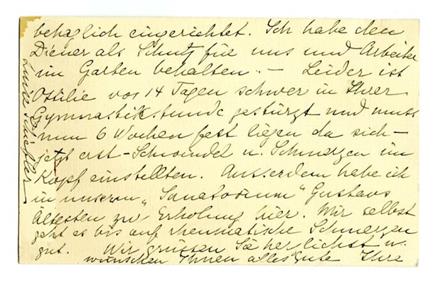 behaglich eingerichtet. Ich habe den
Diener als Schutz für uns und Arbeiter
im Garten behalten. — Leider ist
Ottilie vor 14 Tagen schwer in Ihrer
Gymnastikstunde gestürzt und muss
nun 6 Wochen fest liegen da sich -
jetzt erst - Schwindel u. Schmerzen im
Kopf einstellten. Ausserdem habe ich
in unserem „Sanatorium" Gustavs
Ältesten zur Erholung hier. Wir selbst
geht es bis auf rheumatische Schmerzen
gut. Wir grüssen Sie herzlichst u.
wünschen Ihnen alles gute Ihre